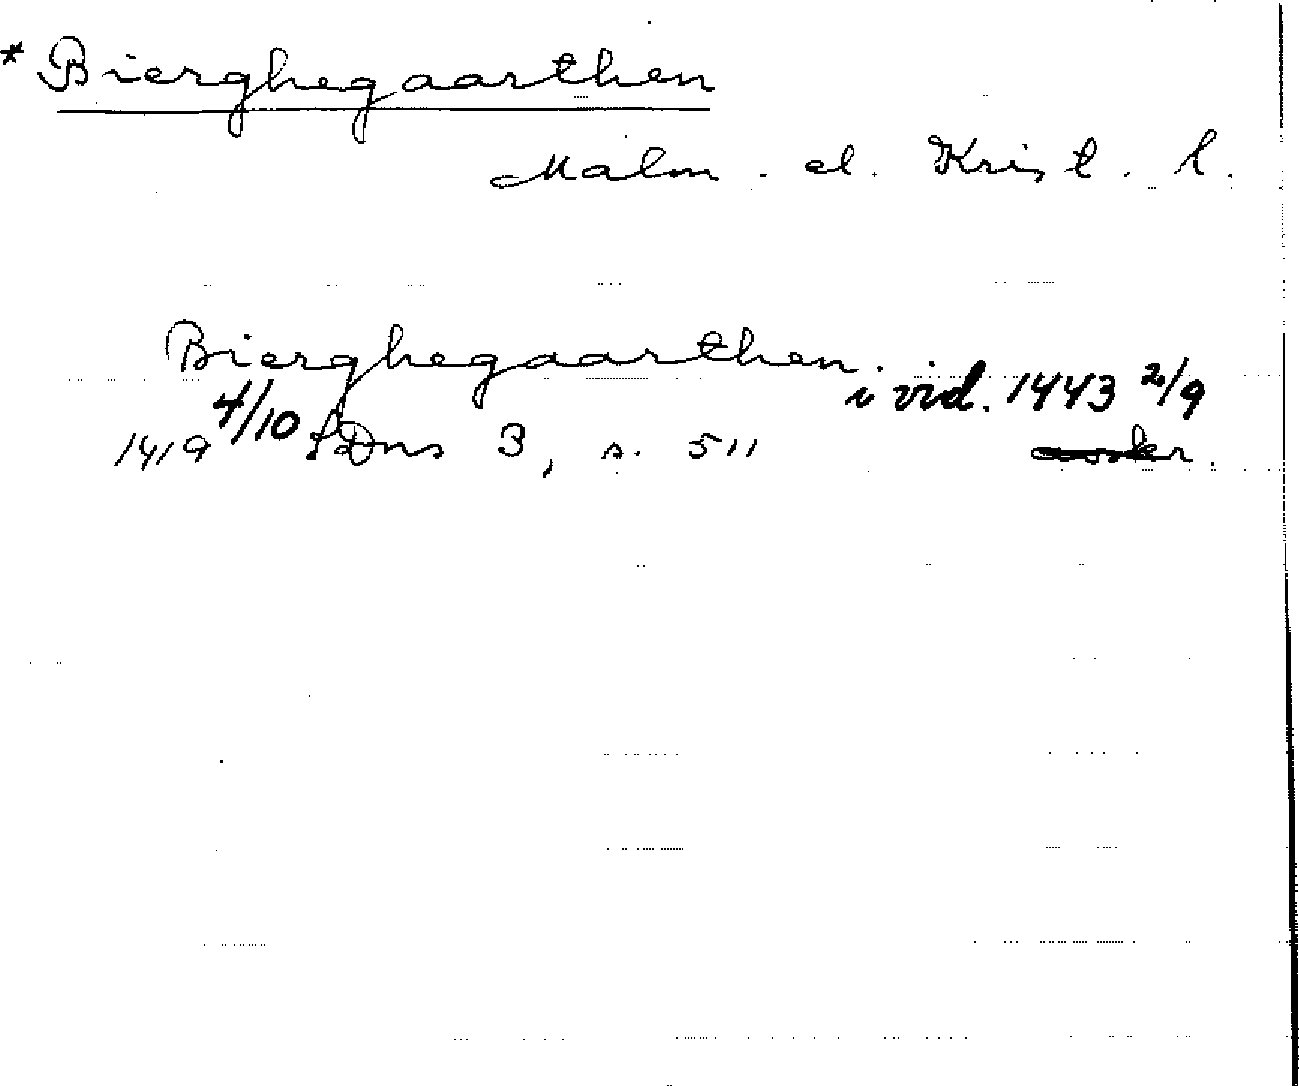 * Bierghegaarthen
Malm. el. Krist. l.
Bierghegaarthen.
i vid. 1443 2/9
1419 4/10 SDns 3, s. 511